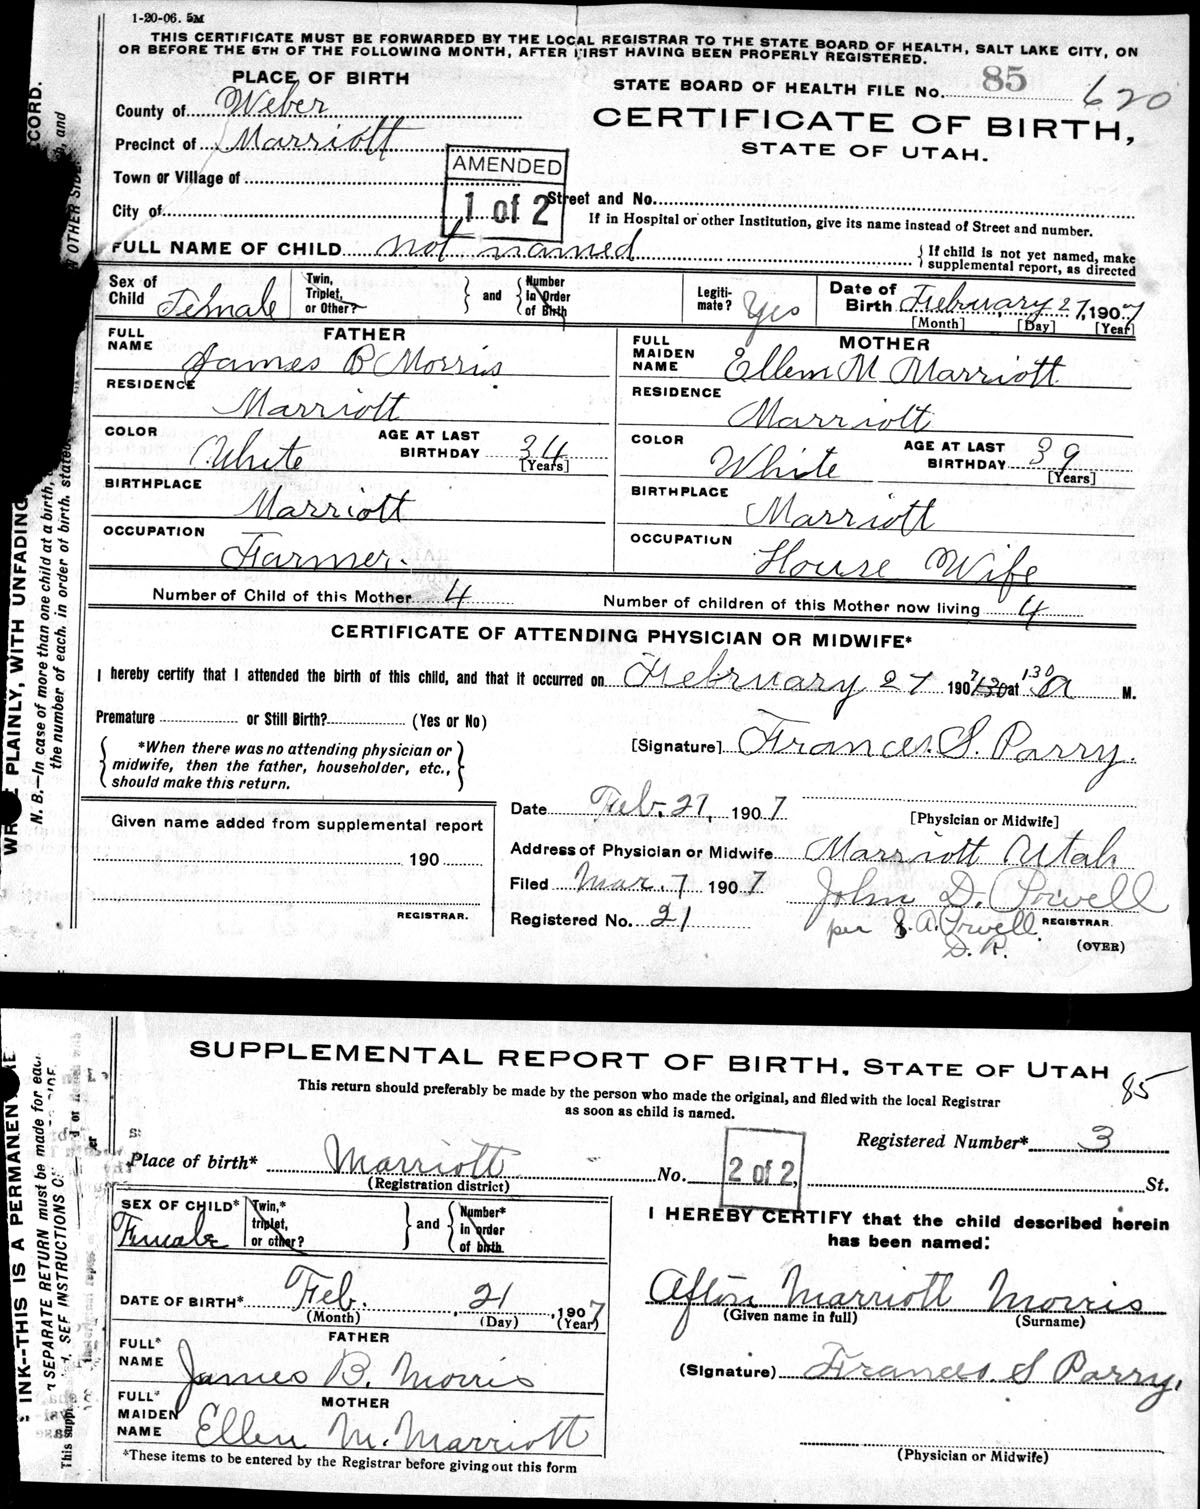 1-20-06. 5M
THIS CERTIFICATE MUST BE FORWARDED BY THE LOCAL REGISTRAR TO THE STATE BOARD OF HEALTH, SALT LAKE CITY, ON
OR BEFORE THE 5TH OF THE FOLLOWING MONTH, AFTER FIRST HAVING BEEN PROPERLY REGISTERED.
PLACE OF BIRTH
STATE BOARD OF HEALTH FILE No. 85 620
County of Weber
CERTIFICATE OF BIRTH,
STATE OF UTAH.
Precinct of Marriott
AMENDED
1 of 2
Town or Village of
Street and No.
City of
If in Hospital or other Institution, give its name instead of Street and number.
FULL NAME OF CHILD not named
{If child is not yet named, make
supplemental report, as directed
Sex of Child Female
Twin, Triplet, or Other? } and { Number in Order of Birth
Legiti-mate? Yes
Date of Birth February 27, 1907
[Month] [Day] [Year]
FATHER
FULL NAME James B Morris
RESIDENCE Marriott
COLOR White
AGE AT LAST BIRTHDAY 34
[Years]
BIRTHPLACE Marriott
OCCUPATION Farmer.
MOTHER
FULL MAIDEN NAME Ellen M Marriott
RESIDENCE Marriott
COLOR White
AGE AT LAST BIRTHDAY 39
[Years]
BIRTHPLACE Marriott
OCCUPATION House Wife
Number of Child of this Mother 4
Number of children of this Mother now living 4
CERTIFICATE OF ATTENDING PHYSICIAN OR MIDWIFE*
I hereby certify that I attended the birth of this child, and that it occurred on February 27 1907 130 at 130 a M.
Premature or Still Birth? (Yes or No)
{ *When there was no attending physician or
midwife, then the father, householder, etc.,
should make this return. }
[Signature] Frances. S. Parry.
Given name added from supplemental report
190
REGISTRAR.
Date Feb. 27, 1907
[Physician or Midwife]
Address of Physician or Midwife Marriott Utah
Filed Mar. 7 1907
John D. Powell
REGISTRAR
Registered No. 21
per J. A. Powell
D. R.
(OVER)
N. B.—In case of more than one child at a birth,
the number of each, in order of birth, stated
PLAINLY, WITH UNFADING
SUPPLEMENTAL REPORT OF BIRTH, STATE OF UTAH
85
This return should preferably be made by the person who made the original, and filed with the local Registrar
as soon as child is named.
Registered Number* 3
Place of birth* Marriott No. St.
(Registration district)
2 of 2
SEX OF CHILD* Female
Twin,* triplet, or other? } and { Number* in order of birth
DATE OF BIRTH* Feb. 21, 1907
(Month) (Day) (Year)
FATHER
FULL* NAME James B. Morris
MOTHER
FULL* MAIDEN NAME Ellen M. Marriott
*These items to be entered by the Registrar before giving out this form
I HEREBY CERTIFY that the child described herein
has been named:
Afton Marriott Morris
(Given name in full) (Surname)
(Signature) Frances. S Parry.
(Physician or Midwife)
INK--THIS IS A PERMANEN
SEPARATE RETURN must be made for eac
INSTRUCTIONS